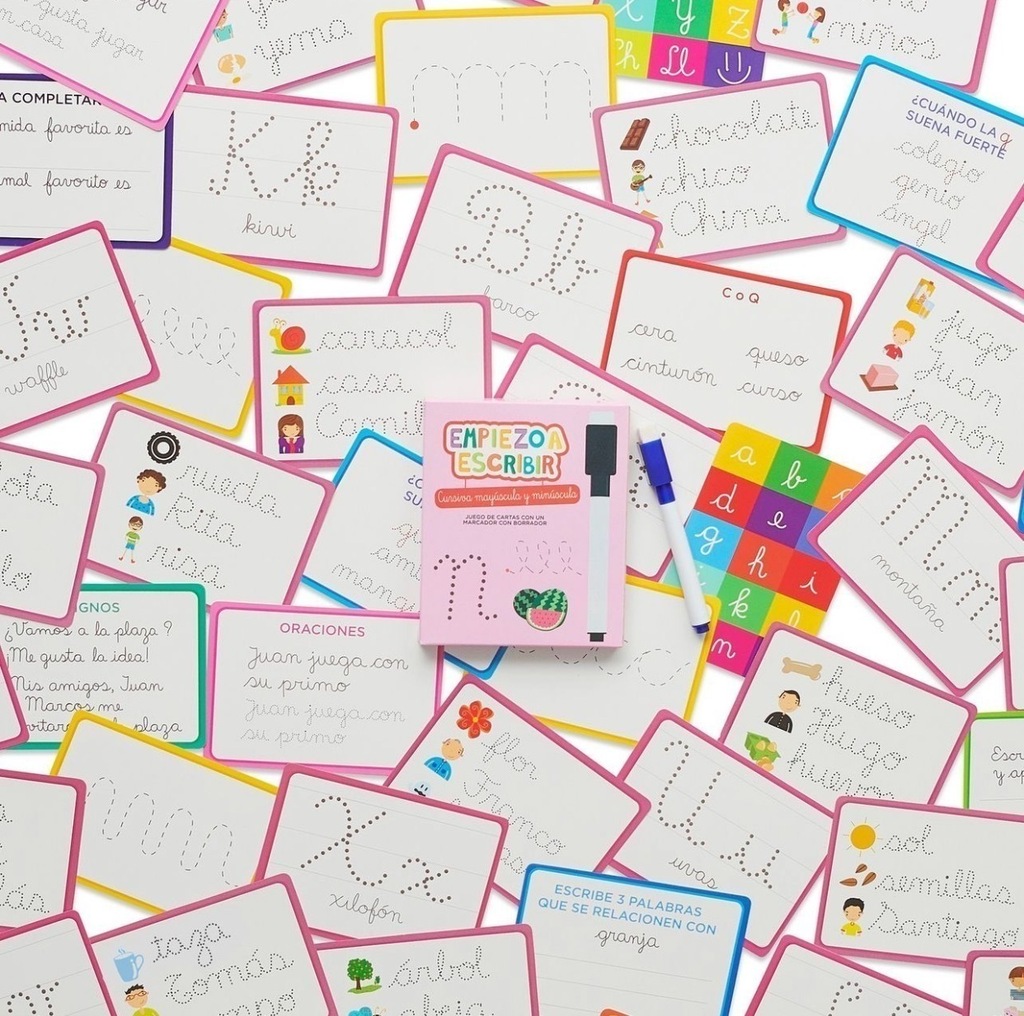 gusta jugar
n casa
gusta jugar
n casa
yema
x y z
Ch Ll
niños
A COMPLETAR
mida favorita es
mal favorito es
K k
kiwi
chocolate
chico
China
¿CUÁNDO LA g
SUENA FUERTE
colegio
genio
ángel
B b
barco
W w
waffle
caracol
casa
C o Q
cera
queso
cinturón
curso
jugo
Juan
jamón
EMPIEZO A
ESCRIBIR
Cursiva mayúscula y minúscula
JUEGO DE CARTAS CON UN
MARCADOR CON BORRADOR
n
a b
d e
g h i
k
m
M m
montaña
rueda
Rita
risa
¿Vamos a la plaza ?
¡Me gusta la idea!
Mis amigos, Juan
Marcos me
la plaza
ORACIONES
Juan juega con
su primo
Juan juega con
su primo
hueso
Hugo
huevo
flor
Franco
U u
uvas
X x
xilofón
sol
semillas
Santiago
ESCRIBE 3 PALABRAS
QUE SE RELACIONEN CON
granja
taza
Tomás
árbol